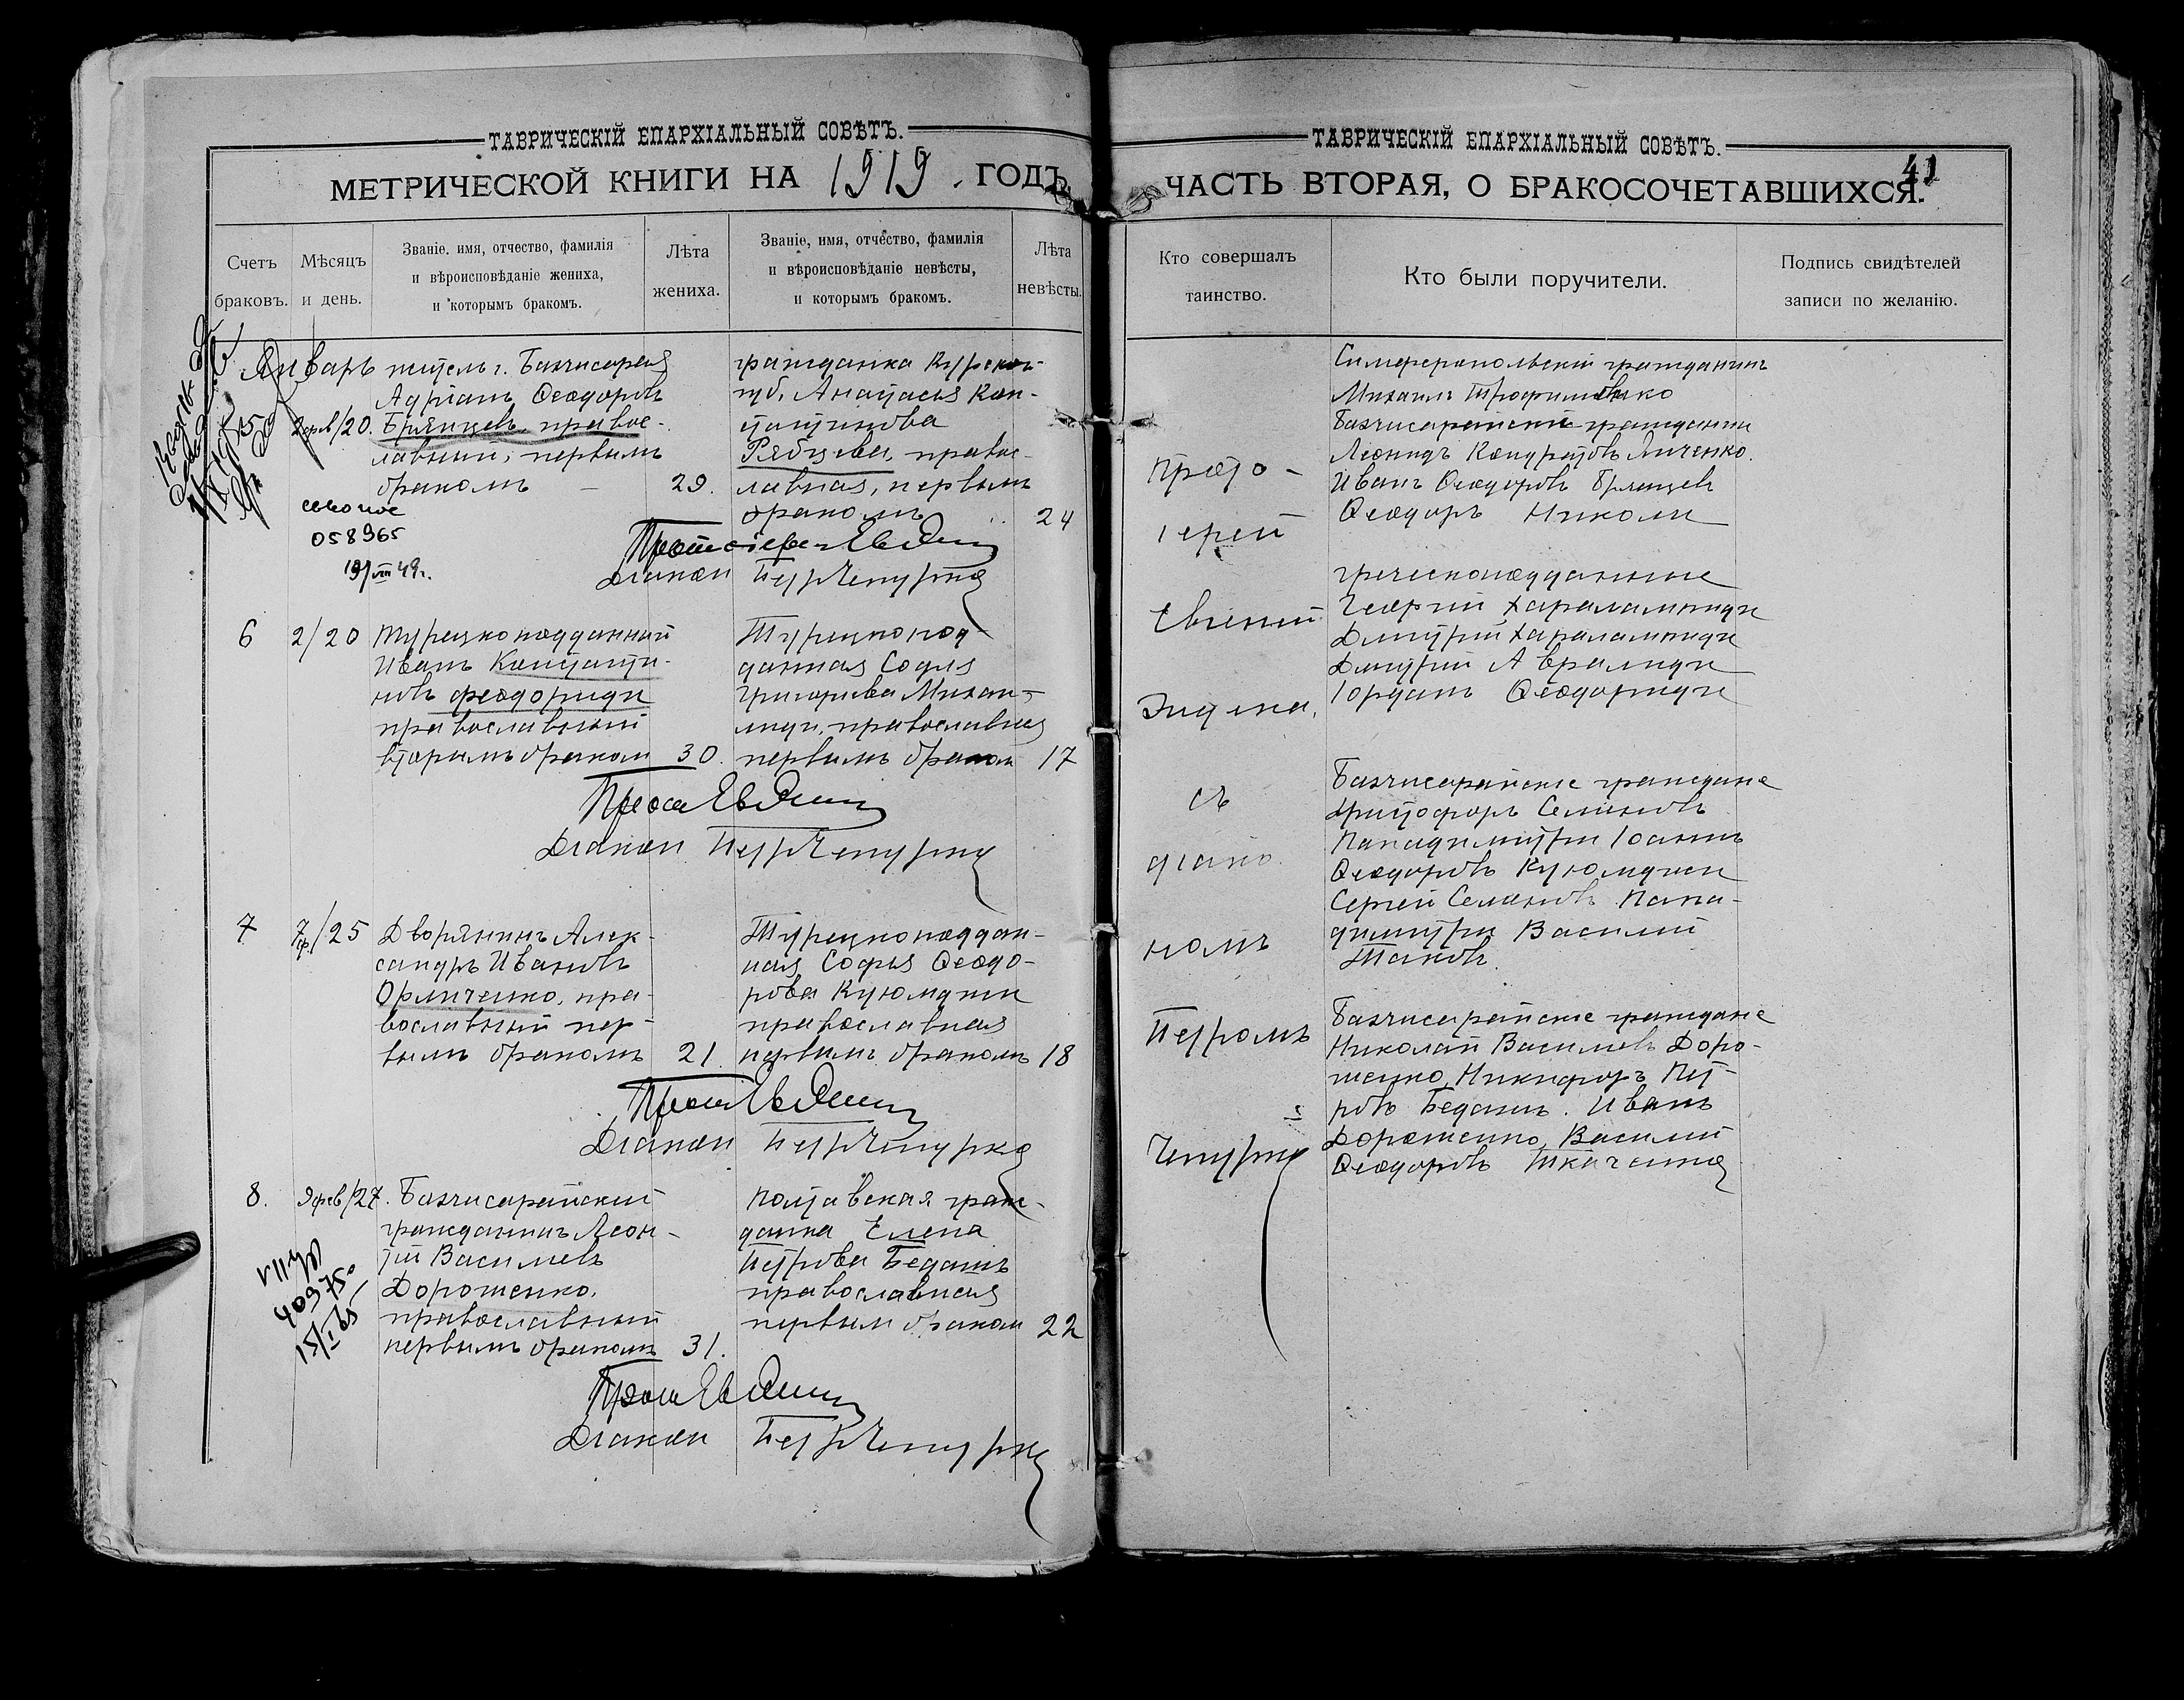 ТАВРИЧЕСКІЙ ЕПАРХІАЛЬНЫЙ СОВѢТЪ.
МЕТРИЧЕСКОЙ КНИГИ НА 1919 . ГОДЪ
Счетъ браковъ.
Мѣсяцъ и день.
Званіе, имя, отчество, фамилія
и вѣроисповѣданіе жениха,
и которымъ бракомъ.
Лѣта жениха.
Званіе, имя, отчество, фамилія
и вѣроисповѣданіе невѣсты,
и которымъ бракомъ.
Лѣта невѣсты.
Январь
2 фев/20.
житель г. Бахчисарая
Адріанъ Ѳеодоровъ
Брянцевъ, правос-
лавный, первымъ
бракомъ
29.
гражданка Курской
губ. Анастасія Кон-
стантинова
Рябцева, правос-
лавная, первымъ
бракомъ
24
058965
19/VIII 49 г.
Діакон Петр Чепурко
6
2/20
Турецкоподданный
Иванъ Константи-
новъ Феодориди
православный
вторымъ браком
30.
Турецкопод-
данная Софія
Григорьева Михаи-
лиди, православная
первымъ браком
17
Діакон Петр Чепурко
7
7 ф/25
Дворянинъ Алек-
сандръ Ивановъ
Орличенко, пра-
вославный пер-
вымъ бракомъ
21
Турецкоподдан-
ная Софья Ѳеодо-
рова Куюмджи
православная
первымъ бракомъ
18
Діакон Петр Чепурко
8.
9 фев/27.
Бахчисарайский
гражданинъ Леон-
тій Васильевъ
Дорошенко,
православный
первымъ бракомъ
31.
Полтавская граж-
данка Елена
Петрова Бедашъ
православная
первым браком
22
409750
15/I 65
Діакон Петр Чепурко
ТАВРИЧЕСКІЙ ЕПАРХІАЛЬНЫЙ СОВѢТЪ.
41
ЧАСТЬ ВТОРАЯ, О БРАКОСОЧЕТАВШИХСЯ.
Кто совершалъ таинство.
Кто были поручители.
Подпись свидѣтелей
записи по желанію.
Прото-
іерей
Евгений
Эндека,
съ
діако
номъ
Петромъ
Чепурко
Симферопольскій гражданинъ
Михаилъ Трофименко
Бахчисарайскіе граждани
Леонидъ Кондратовъ Личенко.
Иванъ Ѳеодоровъ Брянцевъ
Ѳеодоръ Николи
Греческоподданные
Георгій Харалампиди
Дмитрій Харалампиди
Дмитрий Аврамиди
Іорданъ Ѳеодориди
Бахчисарайскіе граждане
Христофоръ Семеновъ
Пападимитри Іоаннъ
Ѳеодоровъ Куюмджи
Сергей Семеновъ Папа-
димитри Василий
Таковъ.
Бахчисарайскіе граждане
Николай Васильевъ Доро-
шенко, Никифоръ Пет-
ровъ Бедашъ. Иванъ
Дорошенко, Василий
Ѳеодоровъ Ткаченко